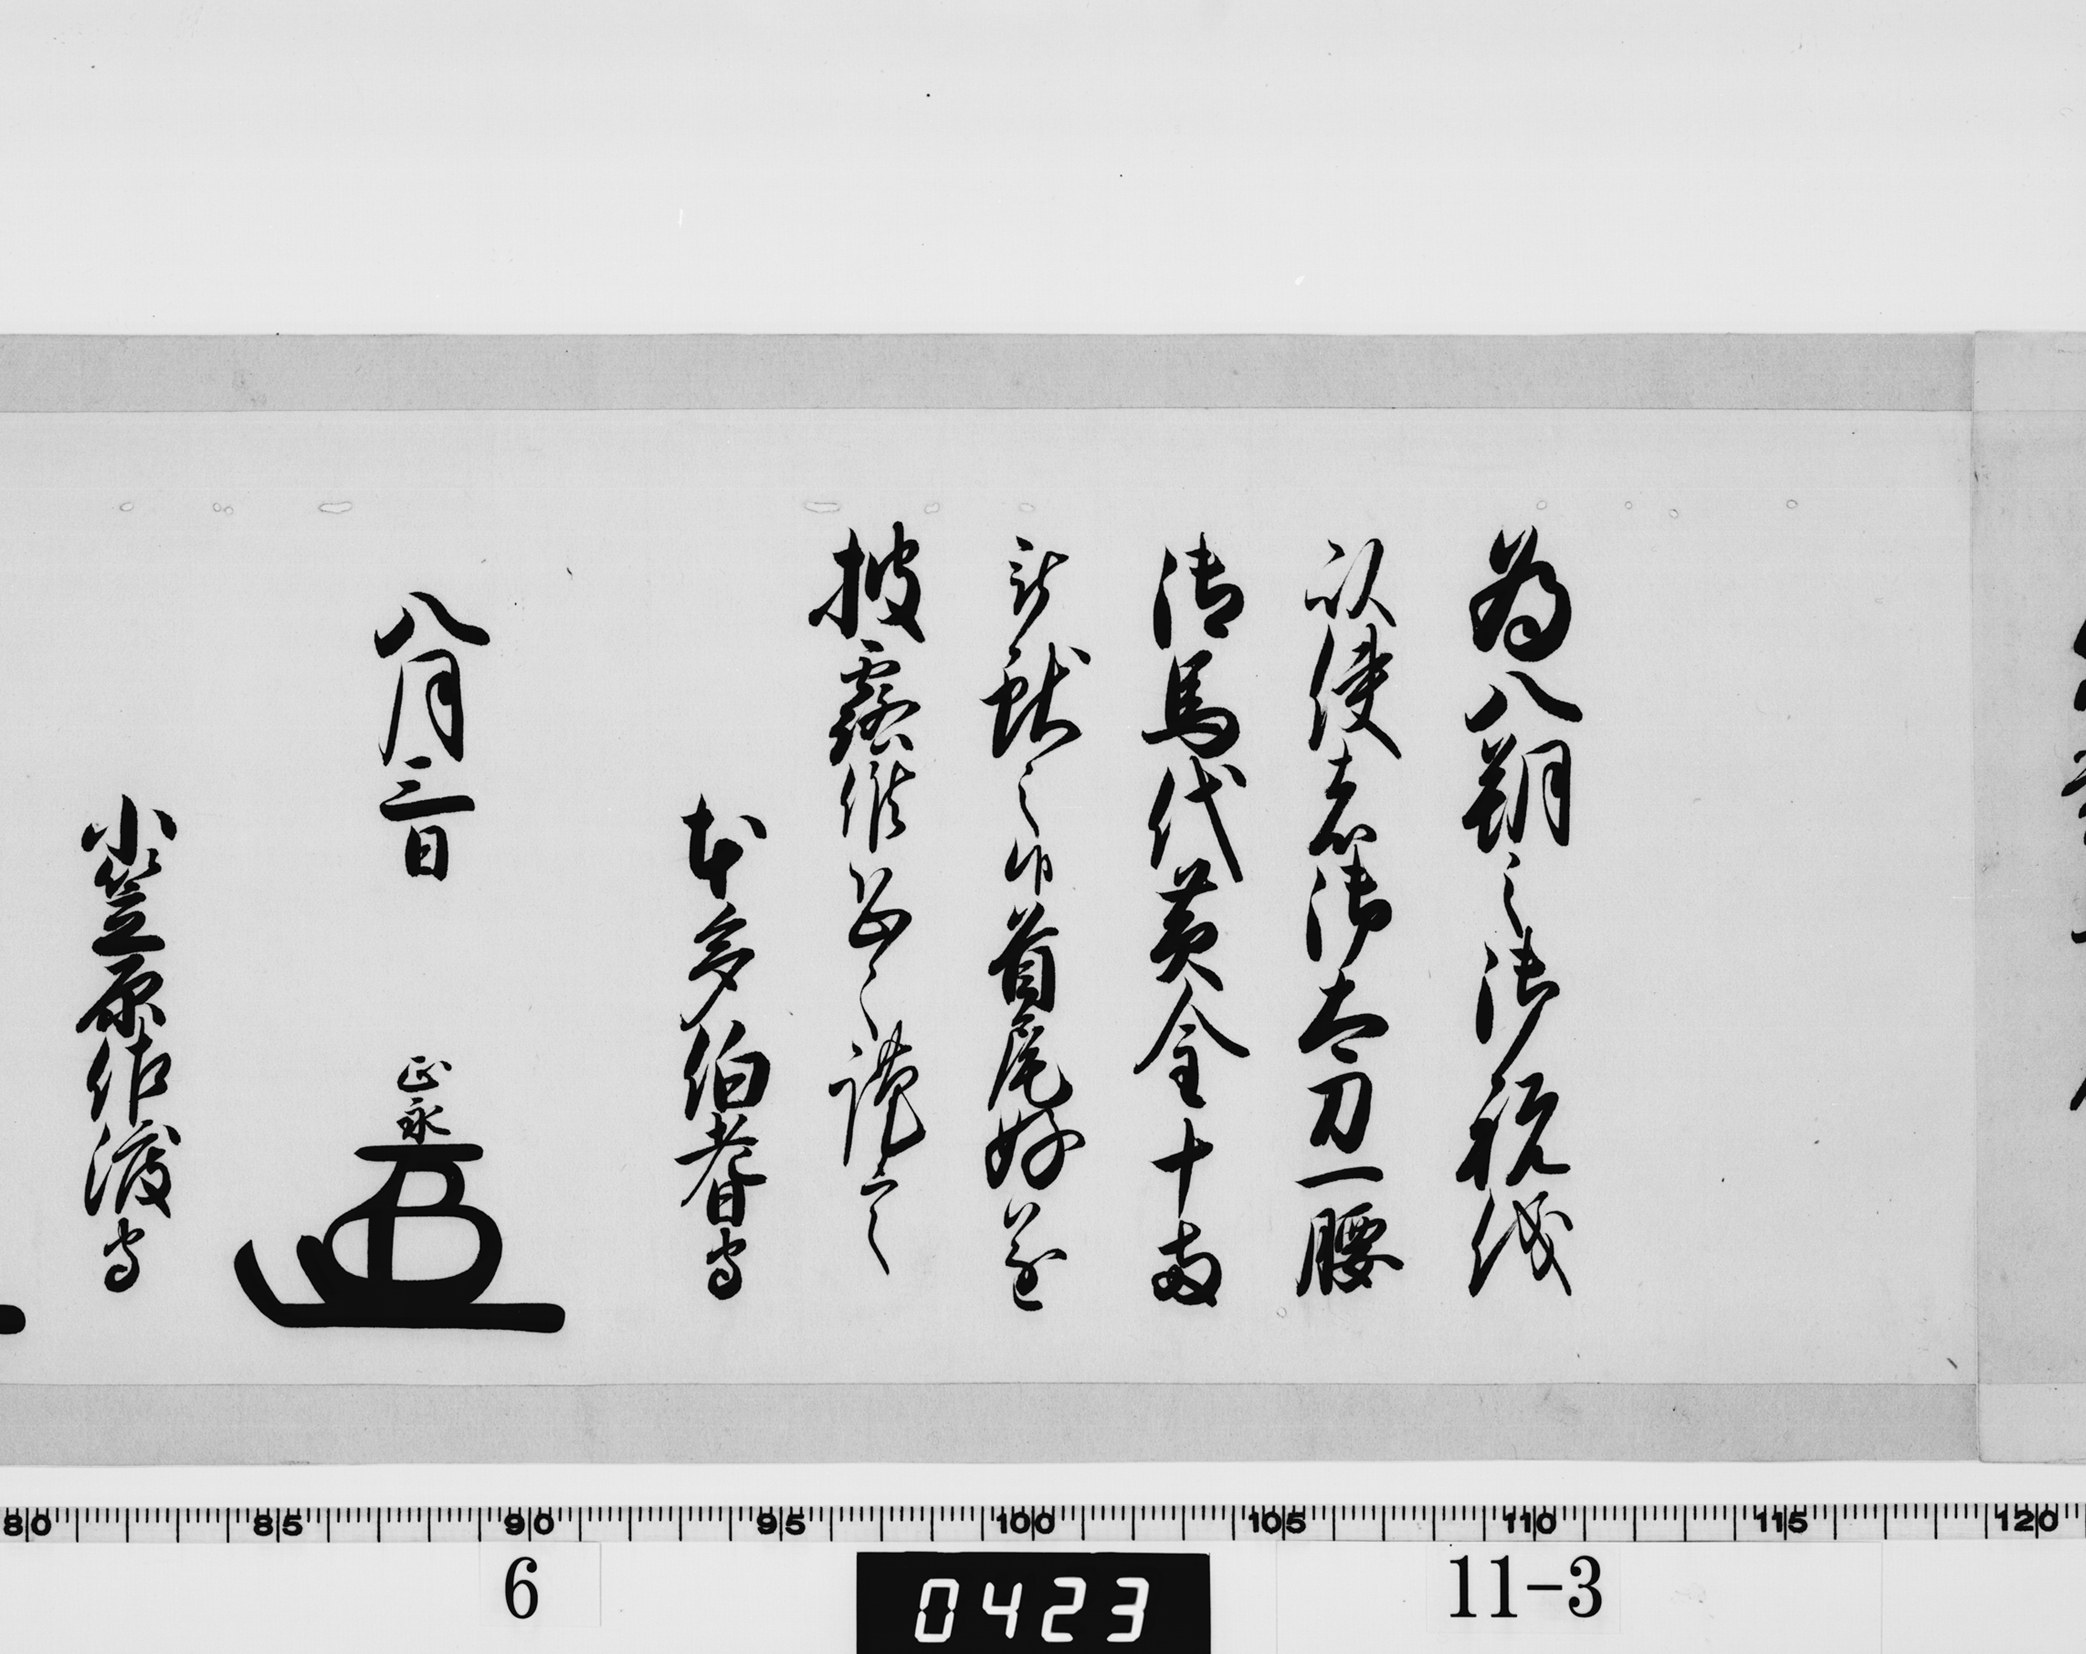 為八朔之御祝儀
以使者御太刀一腰
御馬代黄金十両
被献之候首尾好遂
披露候恐々謹言
本多伯耆守
八月三日 正永
小笠原佐渡守
80 85 90 95 100 105 110 115 120
6 0423 11-3